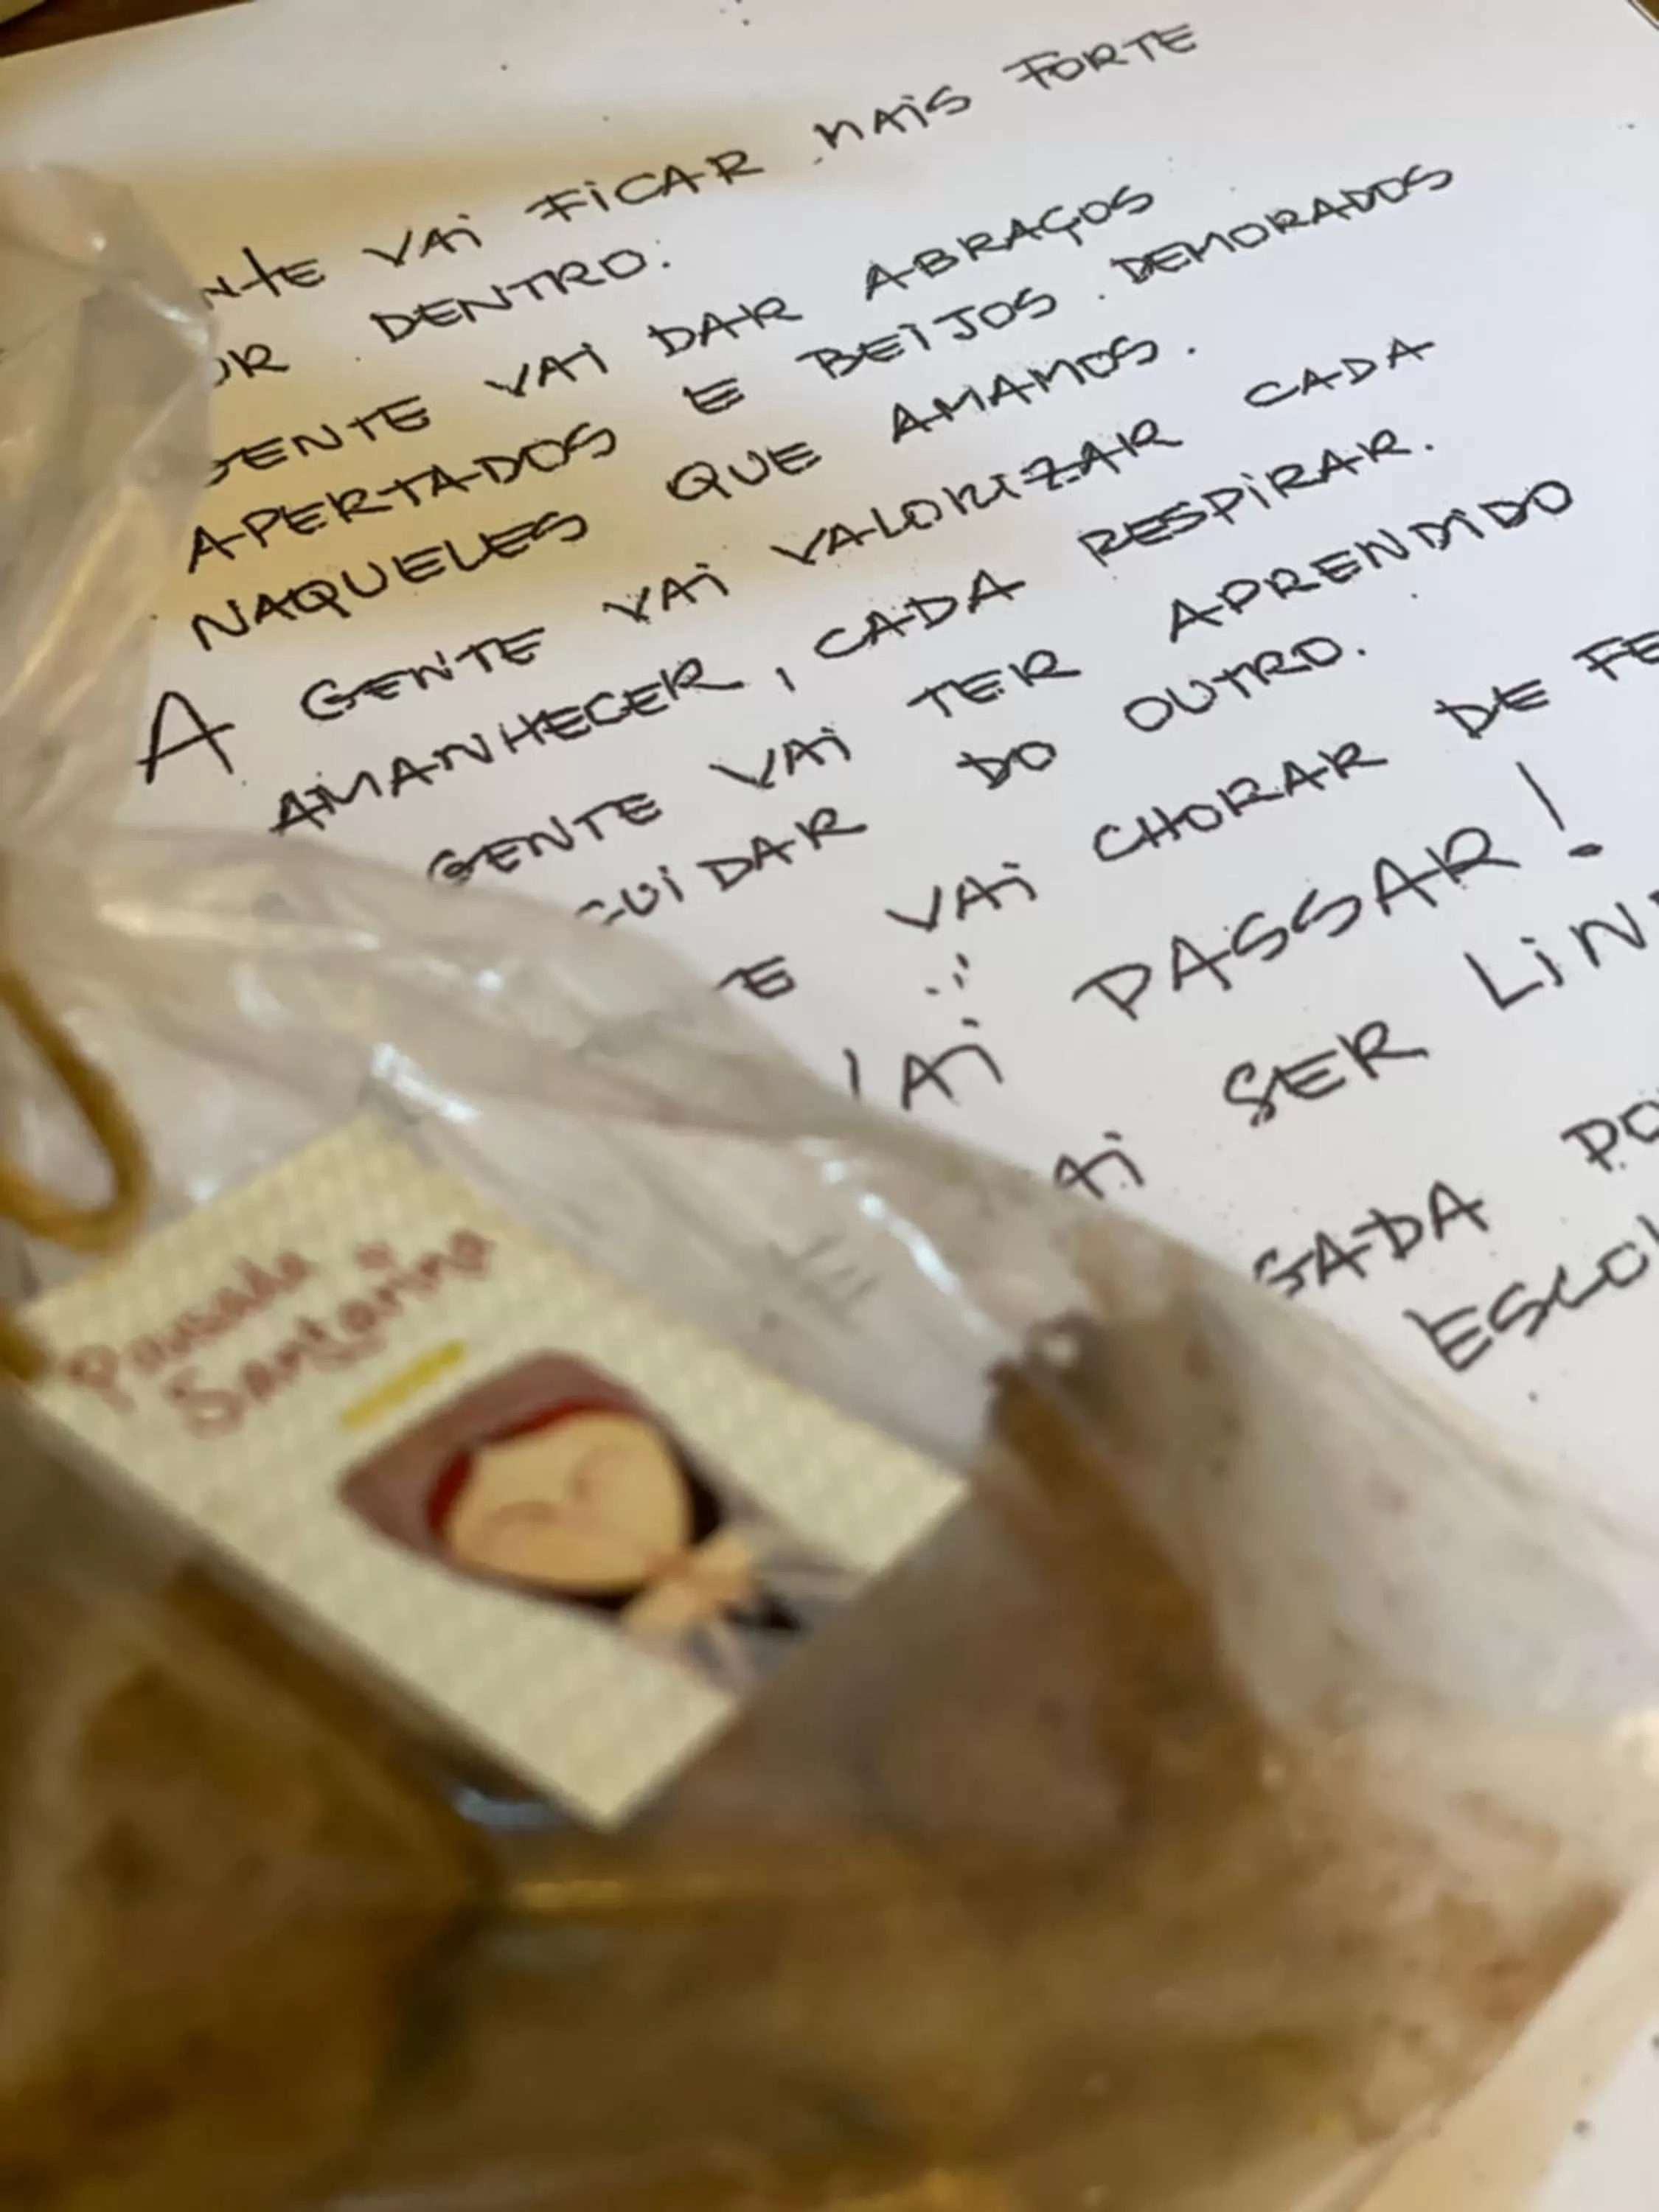 NTE VAI FICAR MAIS FORTE
OR DENTRO.
GENTE VAI DAR ABRAÇOS
APERTADOS E BEIJOS DEMORADOS
NAQUELES QUE AMAMOS.
A GENTE VAI VALORIZAR CADA
AMANHECER, CADA RESPIRAR.
GENTE VAI TER APRENDIDO
CUIDAR DO OUTRO.
E VAI CHORAR DE FE
VAI PASSAR!
AI SER LIN
GADA PO
ESCOL
Pousada
Santorino